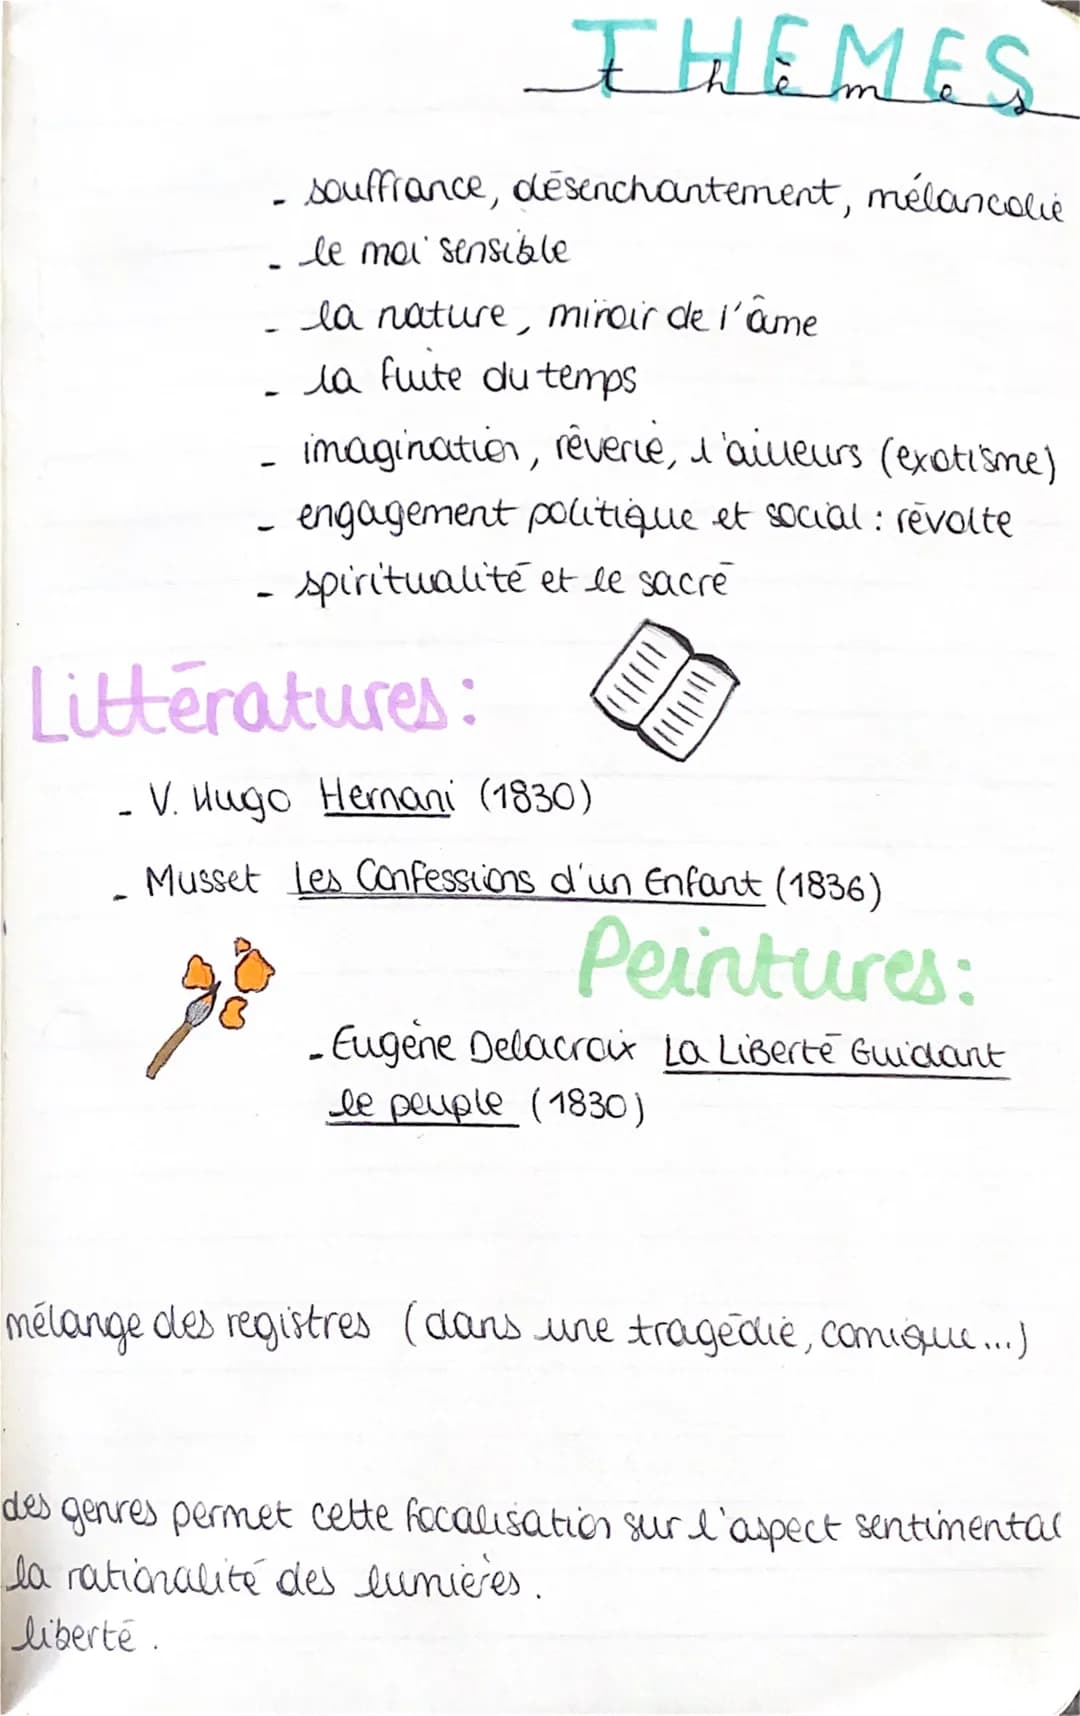 THEMES
thèmes
- souffrance, désenchantement, mélancolie
- le moi sensible
- la nature, miroir de l'âme
- la fuite du temps
- imagination, rêverie, l'ailleurs (exotisme)
- engagement politique et social : révolte
- spiritualité et le sacré
Littératures :
- V. Hugo Hernani (1830)
- Musset Les Confessions d'un Enfant (1836)
Peintures :
- Eugène Delacroix La Liberté Guidant
le peuple (1830)
mélange des registres (dans une tragédie, comique...)
des genres permet cette focalisation sur l'aspect sentimental
la rationalité des lumières.
liberté.